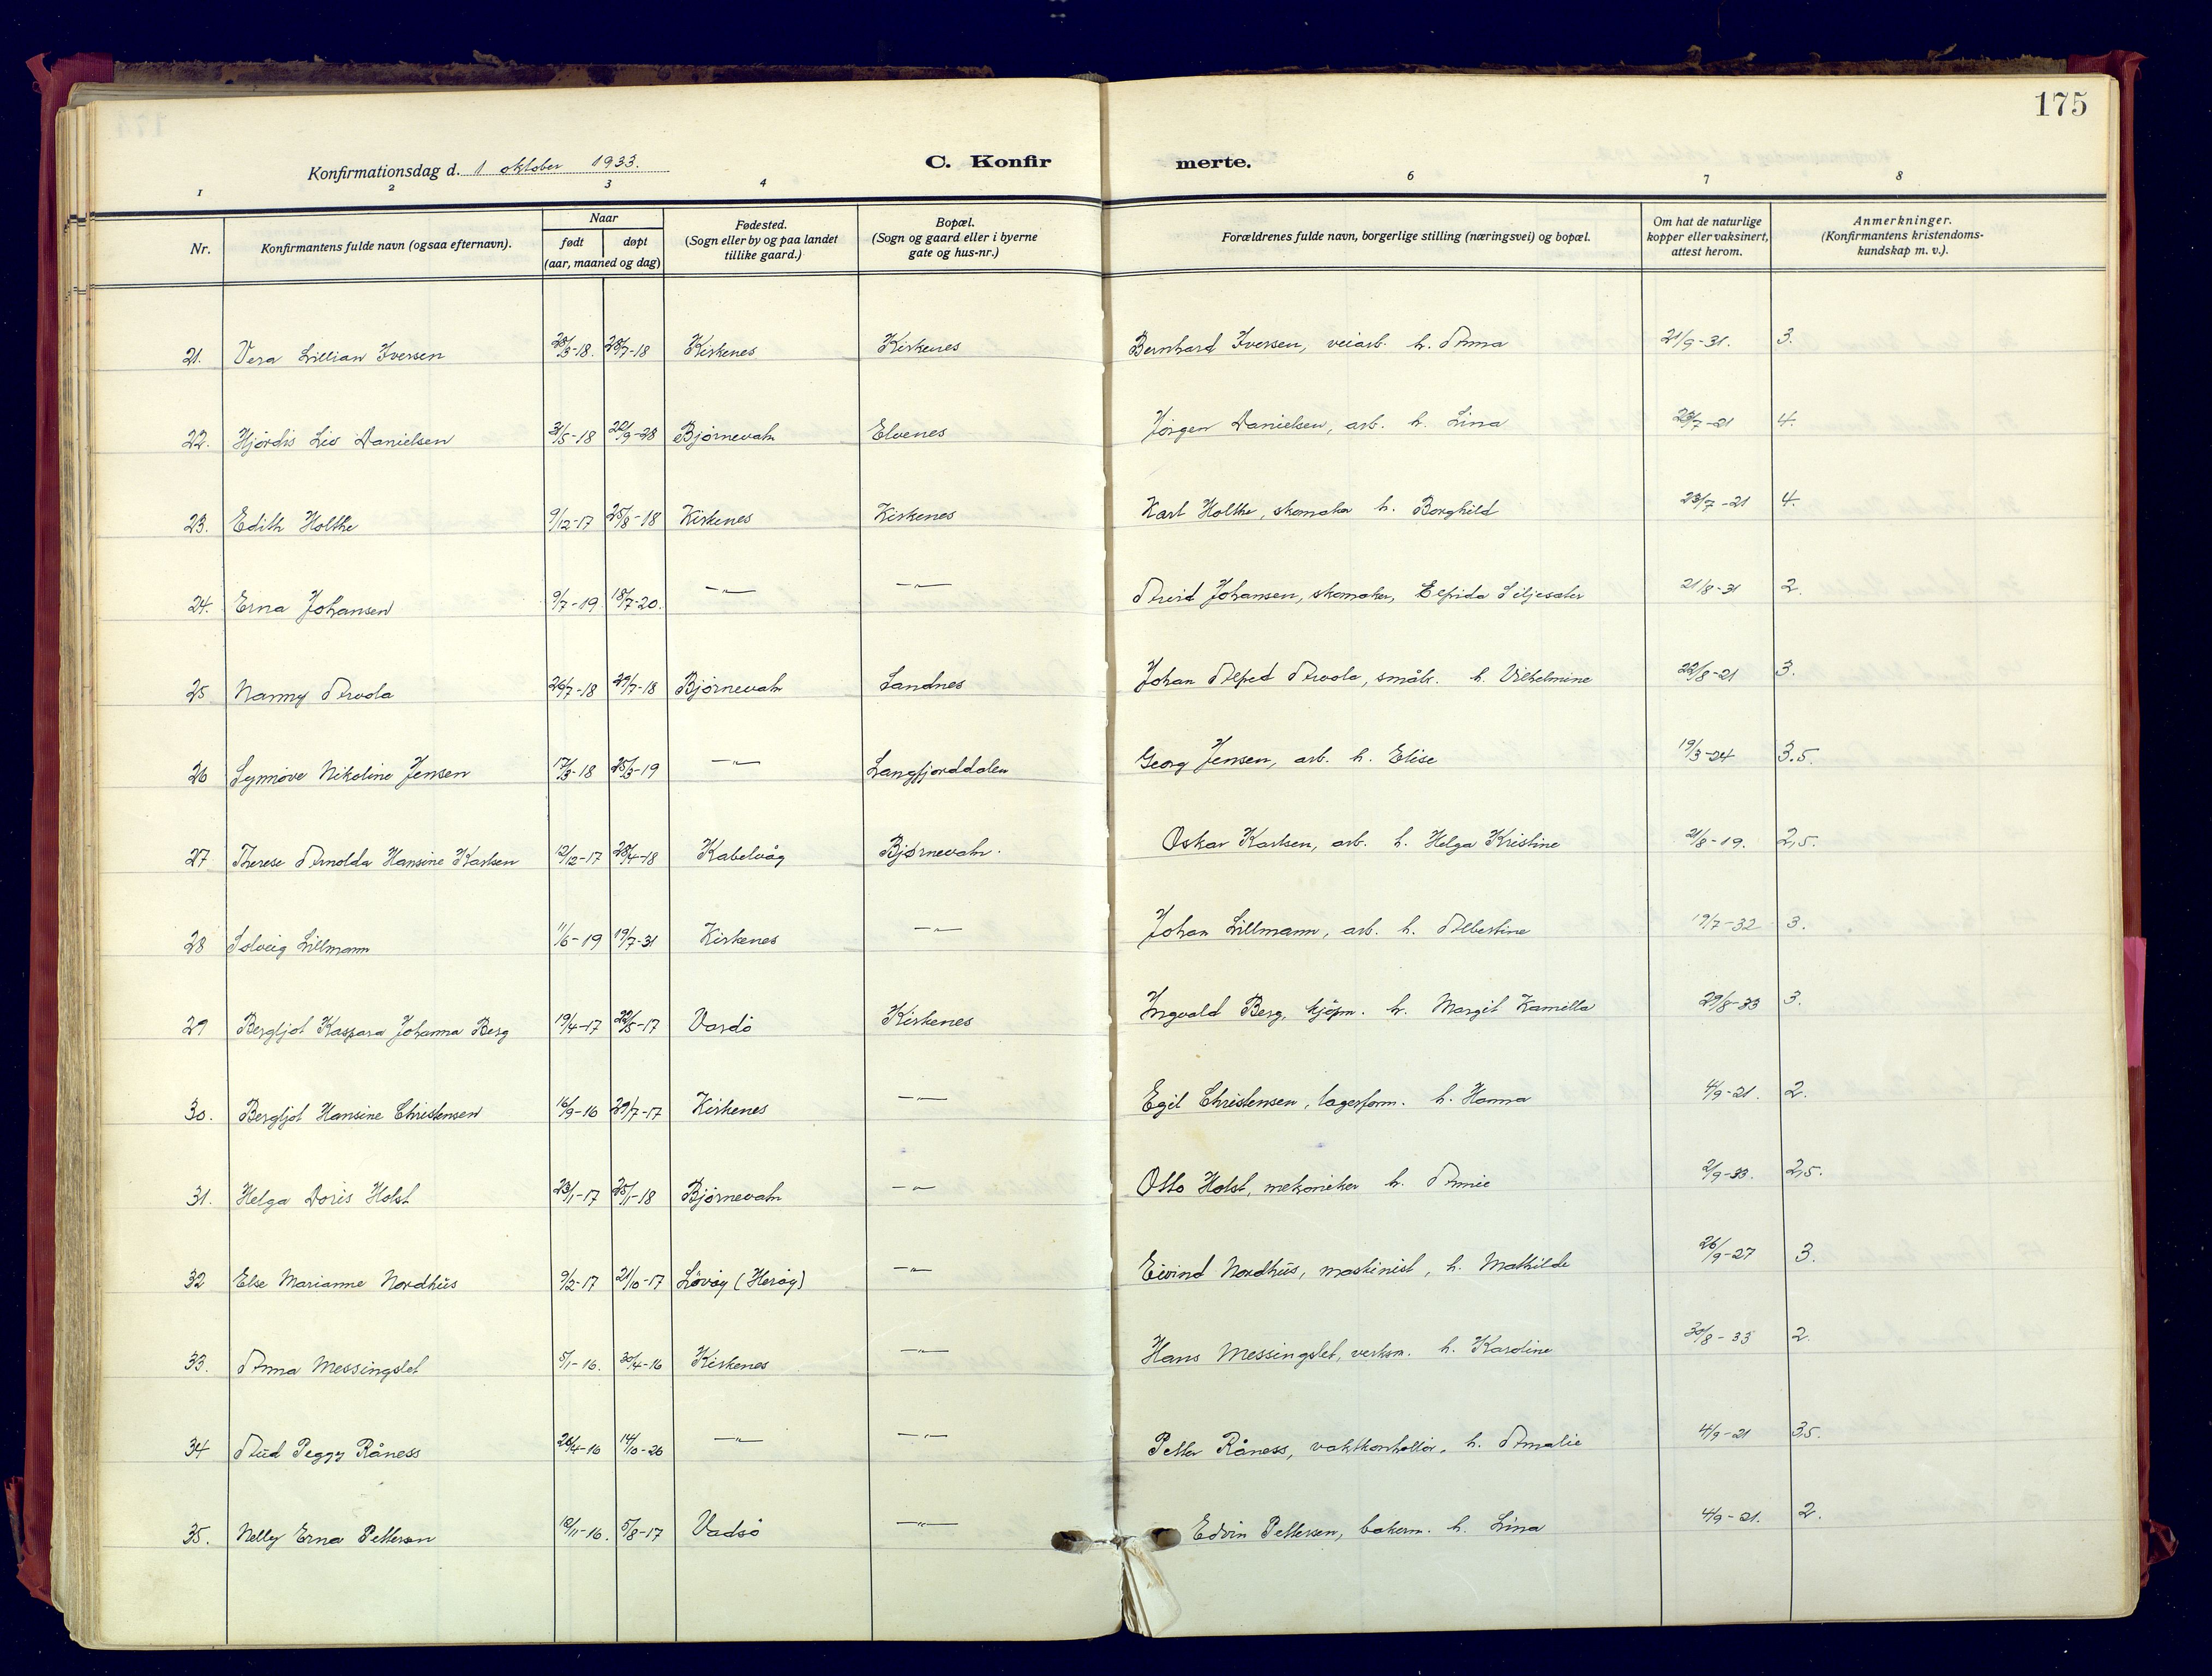 175
Konfirmationsdag d. 1 oktober 1933. C. Konfir merte.
1 2 3 4 6 7 8
Nr. Konfirmantens fulde navn (ogsaa efternavn). Naar født døpt (aar, maaned og dag) Fødested. (Sogn eller by og paa landet tillike gaard.) Bopæl. (Sogn og gaard eller i byerne gate og hus-nr.) Forældrenes fulde navn, borgerlige stilling (næringsvei) og bopæl. Om hat de naturlige kopper eller vaksinert, attest herom. Anmerkninger. (Konfirmantens kristendoms-kundskap m. v.).
21. Vera Lillian Iversen 28/3-18. 28/7-18 Kirkenes Kirkenes Bernhard Iversen, veiarb. h. Anna 21/9-31. 3.
22. Hjördis Liv Danielsen 31/5-18 22/9-28 Bjørnevatn Elvenes Jörgen Danielsen, arb. h. Lina 23/7-21 4.
23. Edith Holthe 9/12-17 25/8-18 Kirkenes Kirkenes Karl Holthe, skomaker h. Borghild 23/7-21 4.
24. Erna Johansen 9/7-19 18/7-20. —"— —"— Arvid Johansen, skomaker, Elfrida Siljesæter 21/8-31 2.
25 Nanny Arvola 26/7-18 29/7-18 Bjørnevatn Sandnes Johan Alfred Arvola, småbr. h. Vilhelmine 22/8-21 3.
26 Synnöve Nikoline Jensen 17/3-18 25/3-19 —"— Langfjorddalen Georg Jensen, arb. h. Elise 19/3-24 3.5.
27 Therese Arnolda Hansine Karlsen 12/12-17 28/4-18 Kabelvåg Bjørnevatn. Oskar Karlsen, arb. h. Helga Kristine 21/8-19. 2,5.
28 Solveig Lillmann 11/6-19 19/7-31 Kirkenes —"— Johan Lillmann, arb. h. Albertine 19/7-32 3.
29 Bergljot Kaspara Johanna Berg 19/4-17 22/5-17 Vardö Kirkenes Ingvald Berg, kjöpm. h. Margit Kamilla 29/8-33 3.
30. Bergljot Hansine Christensen 16/9-16 29/7-17 Kirkenes —"— Egil Christensen, lagerform. h. Hanna 4/9-21. 2.
31. Helga Doris Holst 23/1-17 25/1-18 Bjørnevatn —"— Otto Holst, mekaniker h. Annie 2/9-33. 2,5.
32 Else Marianne Nordhüs 9/2-17 21/10-17 Lövöy (Heröy) —"— Eivind Nordhüs, maskinist, h. Mathilde 26/9-27 3.
33. Anna Messingslet 5/1-16. 30/4-16 Kirkenes —"— Hans Messingslet, verksm. h. Karoline 30/8-33 2.
34 Aud Peggy Råness 26/4-16 14/10-26 —"— —"— Petter Råness, vaktkontrollör. h. Amalie 4/9-21 3,5.
35. Nelly Erna Pettersen 12/11-16. 5/8-17 Vadsö —"— Edvin Pettersen, bakerm. h. Lina 4/9-21. 2.